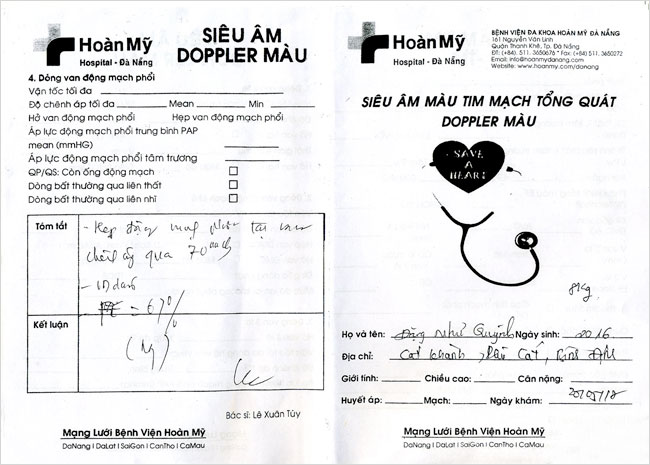 Hoàn Mỹ
Hospital - Đà Nẵng
SIÊU ÂM
DOPPLER MÀU
4. Dòng van động mạch phổi
Vận tốc tối đa
Độ chênh áp tối đa Mean Min
Hở van động mạch phổi Hẹp van động mạch phổi
Áp lực động mạch phổi trung bình PAP
mean (mmHG)
Áp lực động mạch phổi tâm trương
QP/QS: Còn ống động mạch
Dòng bất thường qua liên thất
Dòng bất thường qua liên nhĩ
Tóm tắt
- Hẹp động mạch phổi tại van
chênh áp qua 70
= 67%
Kết luận
Bác sĩ: Lê Xuân Túy
Mạng Lưới Bệnh Viện Hoàn Mỹ
DaNang I DaLat I SaiGon I CanTho I CaMau
Hoàn Mỹ
Hospital - Đà Nẵng
BỆNH VIỆN ĐA KHOA HOÀN MỸ ĐÀ NẴNG
161 Nguyễn Văn Linh
Quận Thanh Khê, Tp. Đà Nẵng
ĐT: (+84) 511. 3650676 * Fax: (+84) 511. 3650272
Email: info@hoanmydanang.com
Website: www.hoanmy.com/danang
SIÊU ÂM MÀU TIM MẠCH TỔNG QUÁT
DOPPLER MÀU
SAVE
A
HEART
8kg
Họ và tên: Đặng Như Quỳnh Ngày sinh: 2016
Địa chỉ: Cát Khánh, Phù Cát, Bình Định
Giới tính: Chiều cao: Cân nặng:
Huyết áp: Mạch: Ngày khám:
Mạng Lưới Bệnh Viện Hoàn Mỹ
DaNang I DaLat I SaiGon I CanTho I CaMau